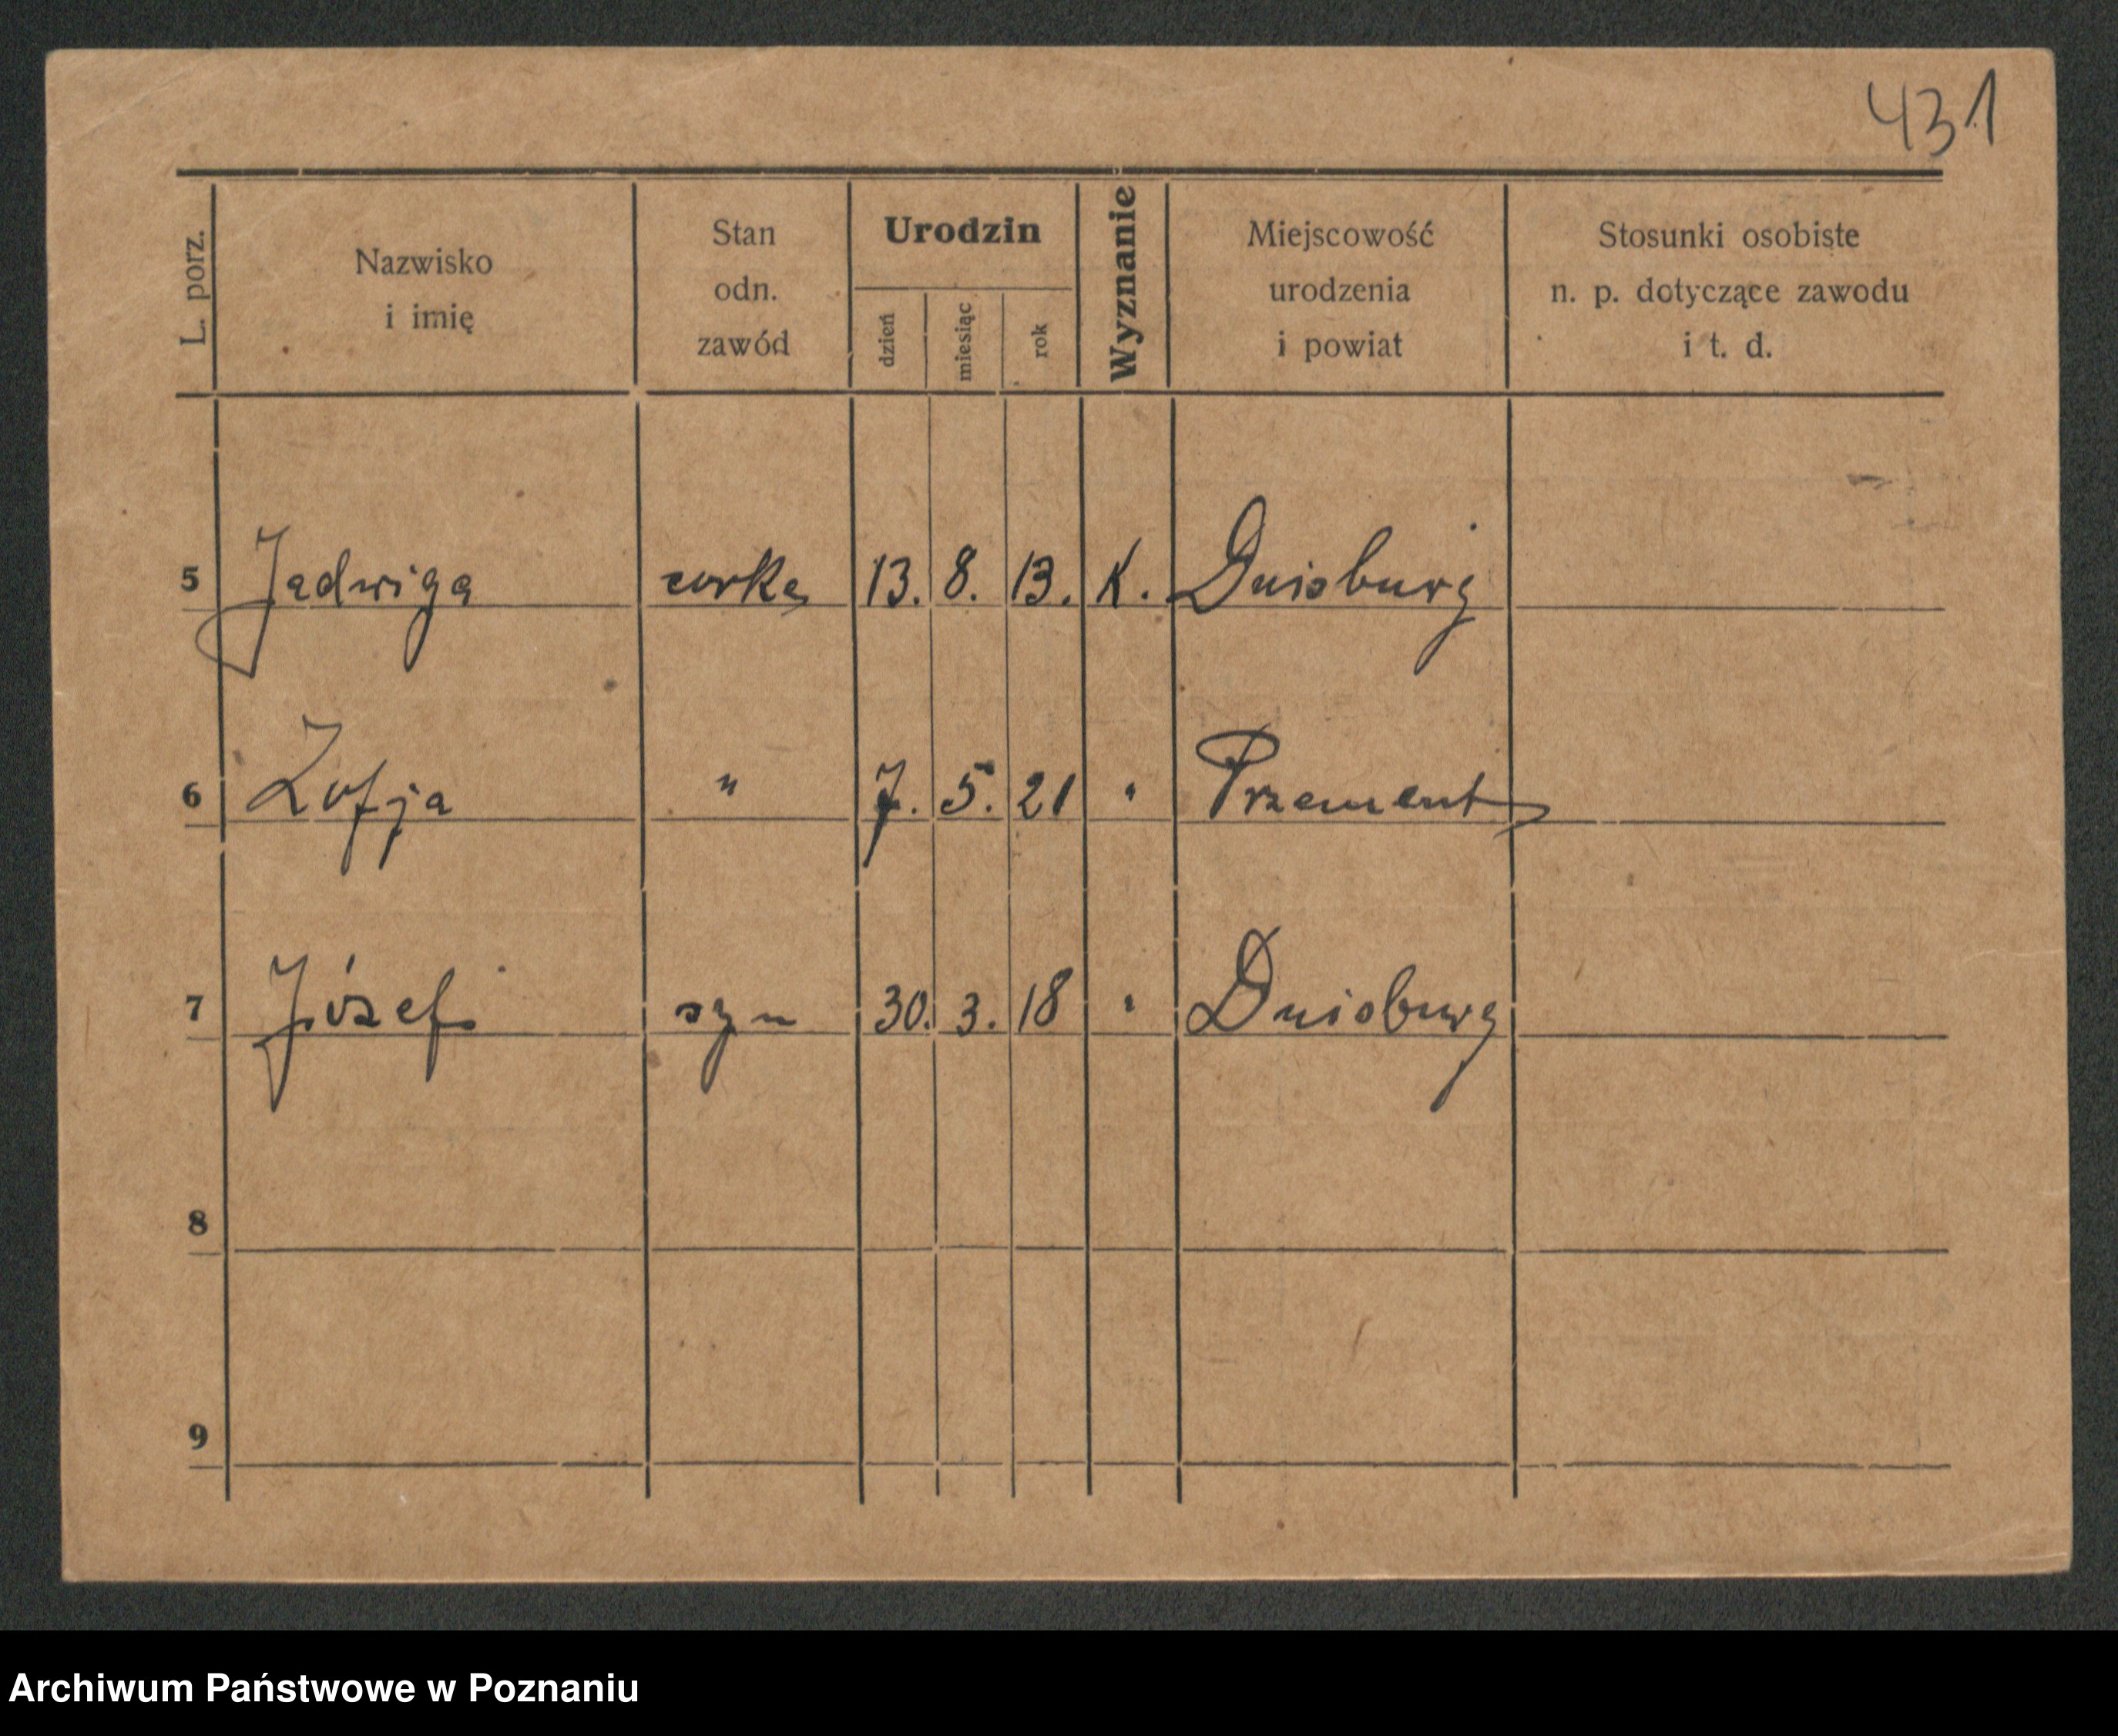 431
L. porz.
Nazwisko
i imię
Stan
odn.
zawód
Urodzin
dzień
miesiąc
rok
Wyznanie
Miejscowość
urodzenia
i powiat
Stosunki osobiste
n. p. dotyczące zawodu
i t. d.
5 Jadwiga corka 13. 8. 13. K. Duisburg
6 Zofja " 7. 5. 21 " Przement
7 Józef syn 30. 3. 18 " Duisburg
8
9
Archiwum Państwowe w Poznaniu